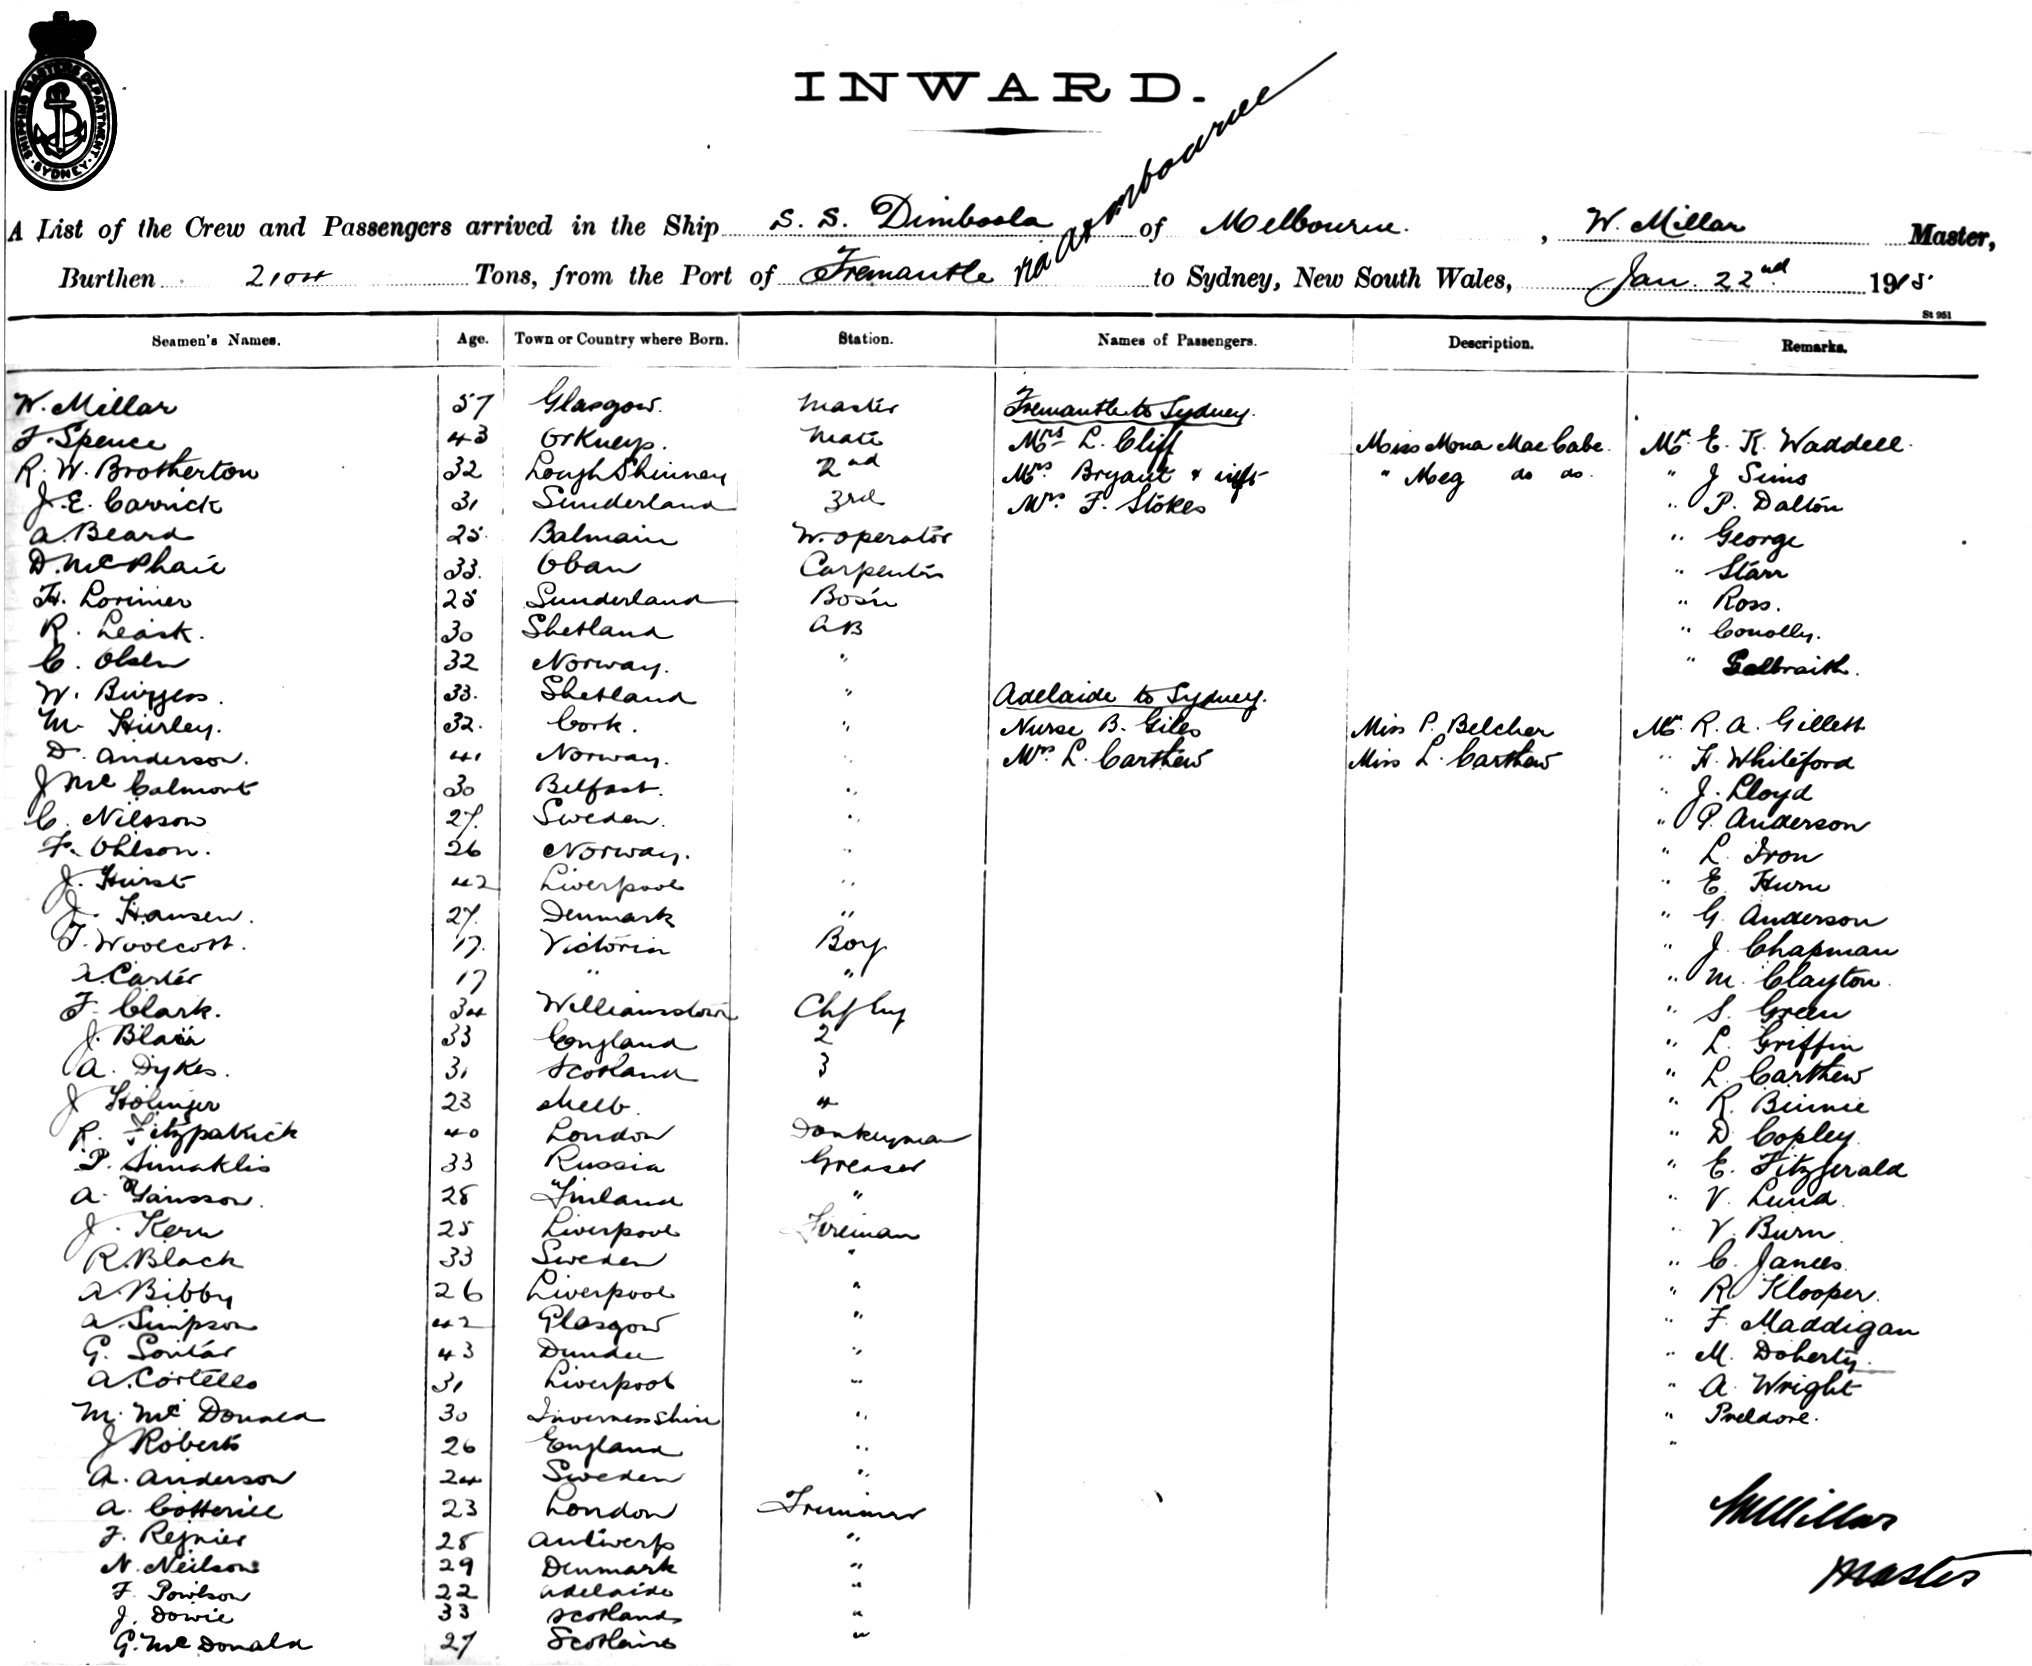 SHIPPING MASTERS DEPARTMENT · SYDNEY ·
INWARD.
via Melbourne
A List of the Crew and Passengers arrived in the Ship S. S. Dimboola of Melbourne. , W. Millar Master,
Burthen 2104 Tons, from the Port of Fremantle to Sydney, New South Wales, Jan. 22nd 1915
St 951
Seamen's Names. Age. Town or Country where Born. Station. Names of Passengers. Description. Remarks.
W. Millar 57 Glasgow. Master Fremantle to Sydney.
F. Spence 43 Orkneys. Mate Mrs L. Cliff Miss Mona MacCabe Mr. E. K. Waddell.
R. W. Brotherton 32 Lough Shinney 2nd Mrs. Bryant & inft " Meg do do. " J Sims
J. E. Carrick 31 Sunderland 3rd Mrs. F. Stokes " P. Dalton
A. Beard 25 Balmain W. operator " George
D. McPhail 33. Oban Carpenter " Starr
H. Lorimer 25 Sunderland Bos'n " Ross.
R. Leask. 30 Shetland AB " Conolly.
C. Olsen 32 Norway. " " Galbraith.
W. Burgess. 33. Shetland " Adelaide to Sydney.
M. Hurley. 32. Cork. " Nurse B. Giles Miss P. Belcher Mr. R. A. Gillett
D. Anderson. 41 Norway. " Mrs. L. Carthew Miss L. Carthew " H. Whiteford
J McCalmont 30 Belfast. " " J. Lloyd
C. Nilsson 27. Sweden. " " P. Anderson
F. Ohlson. 26 Norway. " " L. Iron
J. Hurst 42 Liverpool " " E. Hurn
J. Hansen. 27. Denmark " " G. Anderson
F. Woolcott. 17. Victoria Boy " J. Chapman
A. Carter 17 " " " M. Clayton.
F. Clark. 34 Williamstown Chf Eng " S. Green
J. Blair 33 England 2 " L. Griffin
A. Dykes. 31 Scotland 3 " L. Carthew
J Holinger 23 Melb. 4 " R. Binnie
R. Fitzpatrick 40 London Donkeyman " D. Copley
P. Simaklis 33 Russia Greaser " E. Fitzgerald
A. Jansson. 28 Finland " " V. Lund.
J. Kern 25 Liverpool Fireman " V. Burn.
R. Black 33 Sweden " " C. Janes.
A. Bibby 26 Liverpool " " R. Klooper.
A. Simpson 42 Glasgow " " F. Maddigan
G. Soutar 43 Dundee " " M. Doherty.
A. Costello 31 Liverpool " " A. Wright
M. McDonald 30 Invernesshire " "
J Roberts 26 England " "
A. Anderson 24 Sweden "
A. Cotterill 23 London Trimmer W Millar
F. 28 Antwerp "
N. Neilson 29 Denmark " Master
F. Powlson 22 Adelaide "
J. Dowie 33 Scotland "
G. McDonald 27 Scotland "